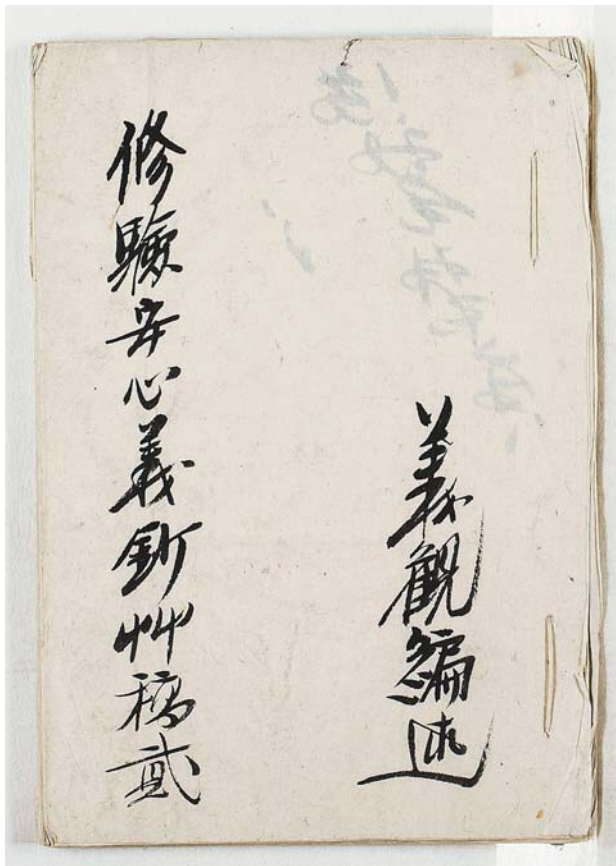 義観編述
修験安心義鈔艸稿貳